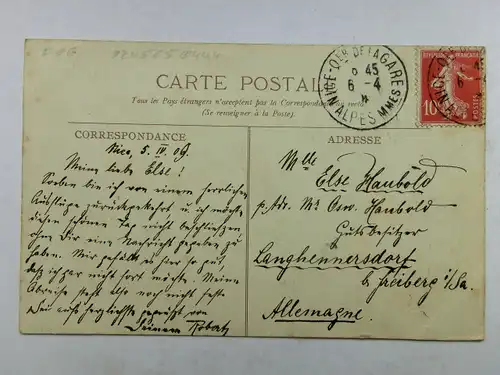 CARTE POSTALE
Tous les Pays étrangers n'acceptent pas la Correspondance au recto
(Se renseigner à la Poste).
CORRESPONDANCE
Nice, 5. IV. 09.
Meine liebe Else!
Soeben bin ich von einem herrlichen
Ausfluge zurückgekehrt u. ich möchte
diesen schönen Tag nicht beschließen,
ohne Dir eine Nachricht gegeben zu
haben. Mir gefällt es hier so gut,
daß ich gar nicht fort möchte. Meine
Abreise steht also noch nicht fest.
Sei aufs herzlichste gegrüßt von
Deinem Robert
ADRESSE
Mlle
Else Haubold
p. Adr. Mr. Osw. Haubold
Gutsbesitzer
Langhennersdorf
b/ Freiberg i/Sa.
Allemagne.
NICE - QER DE LA GARE
45
6 - 4
ALPES MMES
10
POSTES